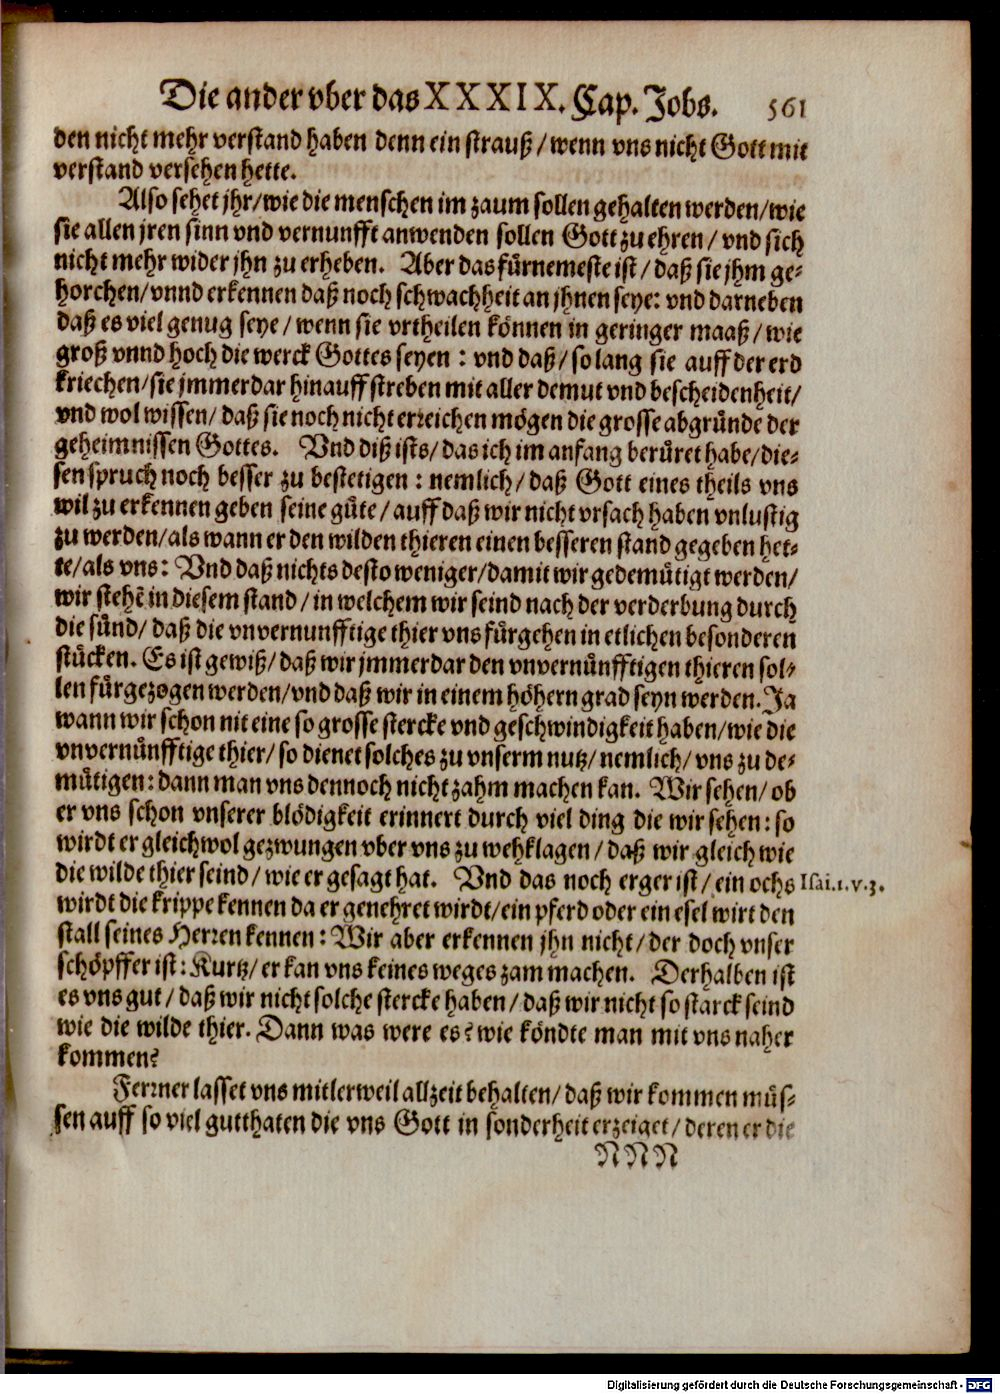 Die ander vber das XXXIX. Cap. Jobs. 561
den nicht mehr verstand haben denn ein strauß / wenn vns nicht Gott mit
verstand versehen hette.
Also sehet jhr/wie die menschen im zaum sollen gehalten werden/wie
sie allen jren sinn vnd vernunfft anwenden sollen Gott zu ehren / vnd sich
nicht mehr wider jhn zu erheben. Aber das fürnemeste ist / daß sie jhm ge-
horchen/vnnd erkennen daß noch schwachheit an jhnen seye: vnd darneben
daß es viel genug seye / wenn sie vrtheilen können in geringer maaß / wie
groß vnnd hoch die werck Gottes seyen : vnd daß / so lang sie auff der erd
kriechen/sie jmmerdar hinauff streben mit aller demut vnd bescheidenheit/
vnd wol wissen/ daß sie noch nicht erreichen mögen die grosse abgründe der
geheimnissen Gottes. Vnd diß ists/ das ich im anfang berüret habe/die-
sen spruch noch besser zu bestetigen : nemlich/ daß Gott eines theils vns
wil zu erkennen geben seine güte / auff daß wir nicht vrsach haben vnlustig
zu werden/als wann er den wilden thieren einen besseren stand gegeben het-
te/als vns: Vnd daß nichts desto weniger/damit wir gedemütigt werden/
wir stehẽ in diesem stand / in welchem wir seind nach der verderbung durch
die sünd/ daß die vnvernunfftige thier vns fürgehen in etlichen besonderen
stücken. Es ist gewiß/ daß wir jmmerdar den vnvernünfftigen thieren sol-
len fürgezogen werden/vnd daß wir in einem höhern grad seyn werden. Ja
wann wir schon nit eine so grosse stercke vnd geschwindigkeit haben/wie die
vnvernünfftige thier/ so dienet solches zu vnserm nutz/ nemlich/ vns zu de-
mütigen: dann man vns dennoch nicht zahm machen kan. Wir sehen/ ob
er vns schon vnserer blödigkeit erinnert durch viel ding die wir sehen: so
wirdt er gleichwol gezwungen vber vns zu wehklagen / daß wir gleich wie
die wilde thier seind/ wie er gesagt hat. Vnd das noch erger ist/ ein ochs Isai.1.v.3.
wirdt die krippe kennen da er genehret wirdt/ein pferd oder ein esel wirt den
stall seines Herren kennen: Wir aber erkennen jhn nicht/ der doch vnser
schöpffer ist: Kurtz/ er kan vns keines weges zam machen. Derhalben ist
es vns gut / daß wir nicht solche stercke haben / daß wir nicht so starck seind
wie die wilde thier. Dann was were es? wie köndte man mit vns naher
kommen?
Ferrner lasset vns mitlerweil allzeit behalten/ daß wir kommen müs-
sen auff so viel gutthaten die vns Gott in sonderheit erzeiget / deren er die
NNN
Digitalisierung gefördert durch die Deutsche Forschungsgemeinschaft - DFG